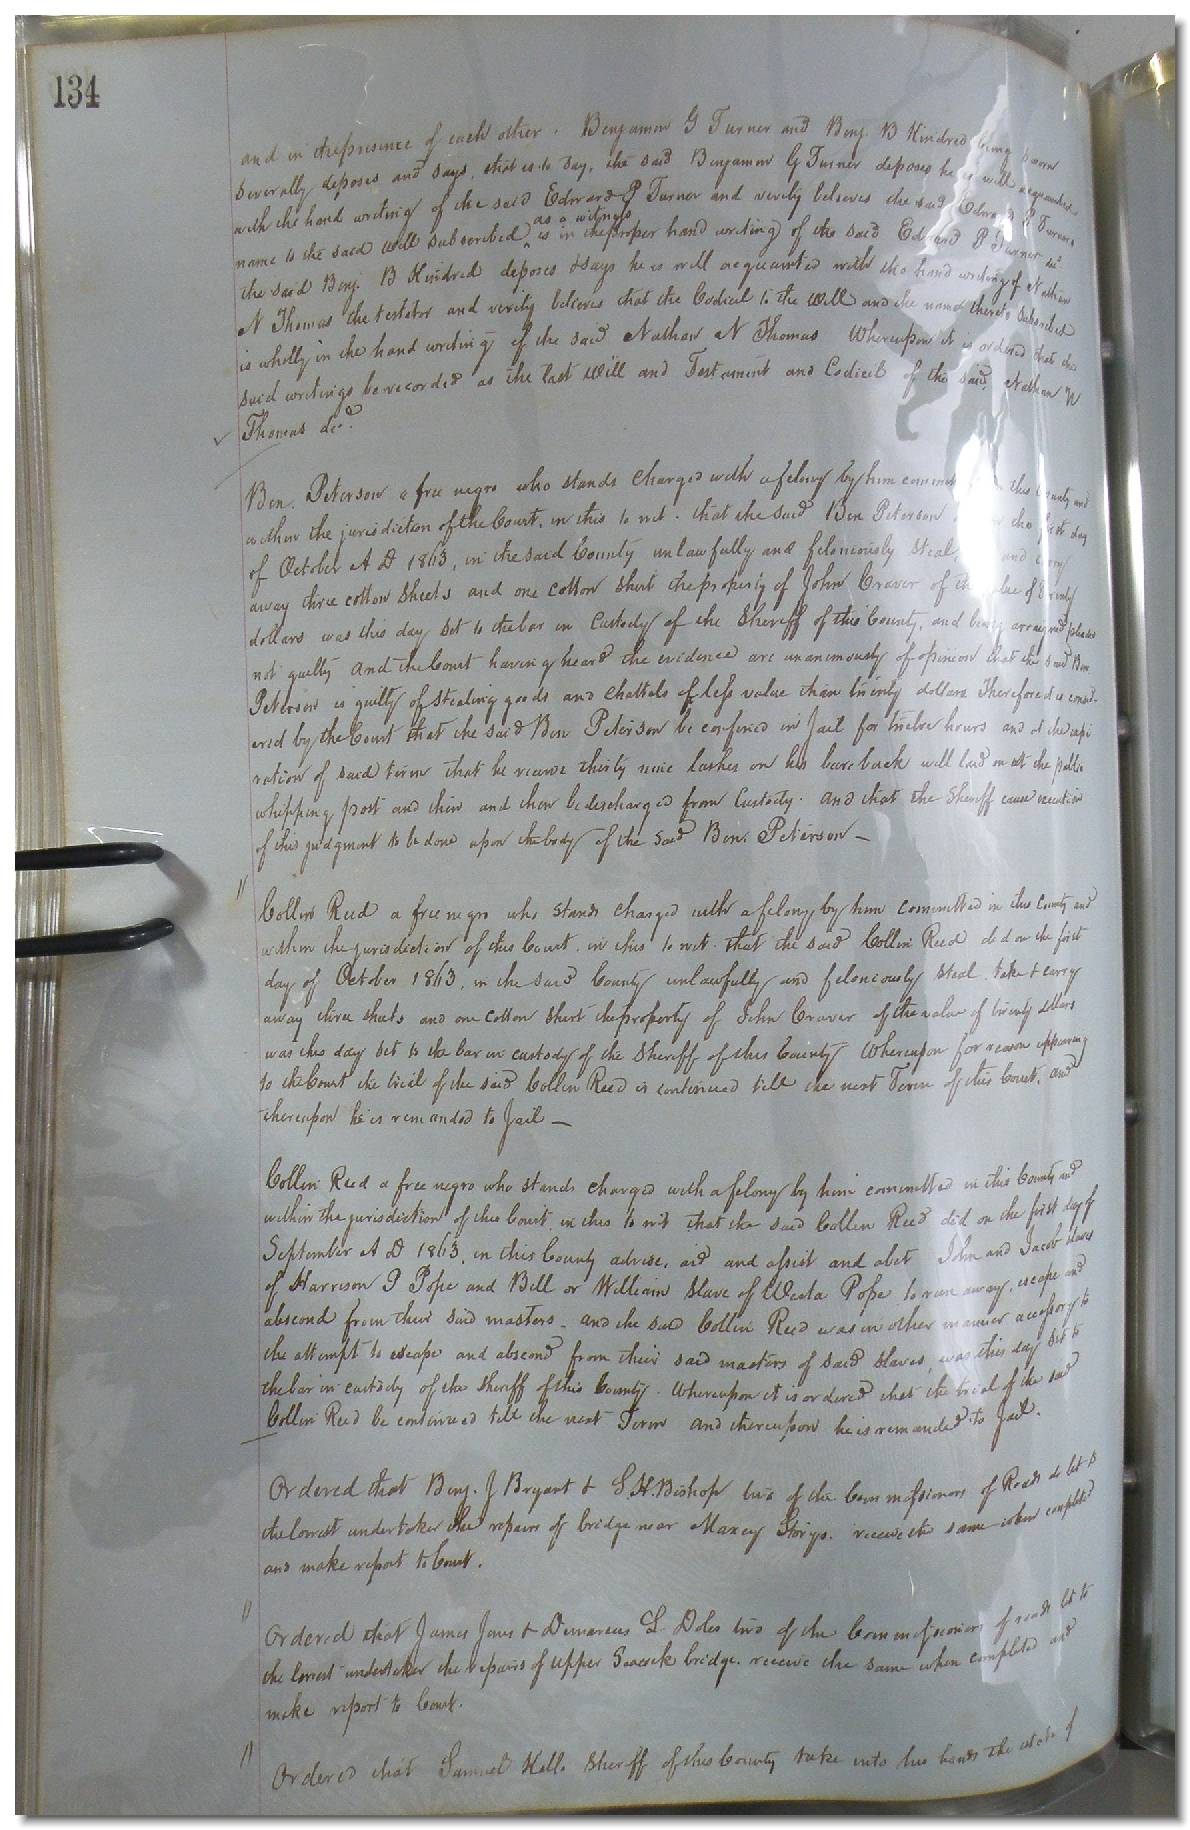 134
and in the presence of each other. Benjamin G Turner and Benj. B Kindred being sworn
severally deposes and says, that is to say, the said Benjamin G Turner deposes he is well acquainted
with the hand writing of the said Edward P Turner and verily believes the said Edward P Turners
as a witness
name to the said will subscribed is in the proper hand writing of the said Edward P Turner
the said Benj. B Kindred deposes & says he is well acquainted with the hand writing of Nathan
N Thomas the testator and verily believes that the Codicil to the Will and the name thereto subscribed
is wholly in the hand writing of the said Nathan N Thomas Whereupon it is ordered that the
said writings be recorded as the last Will and Testament and Codicil of the said Nathan N
Thomas decd.
Ben. Peterson a free negro who stands charged with a felony by him in this County and
within the jurisdiction of the Court, in this to wit. that the said Ben Peterson the first day
of October A D 1863, in the said County unlawfully and feloniously steal, and carry
away three cotton sheets and one cotton shirt the property of John Craver of the value of twenty
dollars was this day set to the bar in Custody of the Sheriff of this County, and being arraigned pleaded
not guilty and the Court having heard the evidence are unanimously of opinion that the said Ben
Peterson is guilty of stealing goods and chattels of less value than twenty dollars Therefore it is consid-
ered by the Court that the said Ben Peterson be confined in Jail for twelve hours and at the expi
ration of said term that he receive thirty nine lashes on his bare back well laid on at the public
whipping post and then and then be discharged from Custody. and that the Sheriff cause execution
of this judgment to be done upon the body of the said Ben. Peterson —
" Collin Reed a free negro who stands charged with a felony by him committed in this County and
within the jurisdiction of this Court. in this to wit. that the said Collin Reed did on the first
day of October 1863, in the said County unlawfully and feloniously steal take & carry
away three sheets and one cotton shirt the property of John Craver of the value of twenty dollars
was this day set to the bar in custody of the Sheriff of this County Whereupon for reason appearing
to the Court the trial of the said Collin Reed is continued till the next Term of this Court, and
thereupon he is remanded to Jail —
Collin Reed a free negro who stands charged with a felony by him committed in this County and
within the jurisdiction of this Court in this to wit that the said Collin Reed did on the first day of
September A D 1863, in this County advise, aid and assist and abet John and Jacob slaves
of Harrison P Pope and Bill or William slave of Pope to run away, escape and
abscond from their said masters - and the said Collin Reed was in other manner accessory to
the attempt to escape and abscond from their said masters of said slaves, was this day set to
the bar in custody of the Sheriff of this County. Whereupon it is ordered that the trial of the said
Collin Reed be continued till the next Term and thereupon he is remanded to Jail.
Ordered that Benj. J Bryant & S. H. Bishop two of the Commissioners of Roads do let to
the lowest undertaker the repairs of bridge near Maxey . receive the same when completed
and make report to Court.
" Ordered that James Jones & Demarcus L Doles two of the Commissioners of roads let to
the lowest undertaker the repairs of upper Seacock bridge. receive the same when completed and
make report to Court.
" Ordered that Samuel Kello Sheriff of this County take into his hands the estate of